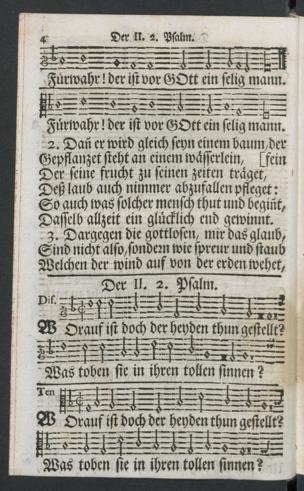 4 Der II. 2. Psalm.
Fürwahr! der ist vor GOtt ein selig mann.
Fürwahr! der ist vor GOtt ein selig mann.
2. Dañ er wird gleich seyn einem baum, der
Gepflanzet steht an einem wässerlein, [fein
Der seine frucht zu seinen zeiten träget,
Deß laub auch nimmer abzufallen pfleget:
So auch was solcher mensch thut und begiñt,
Dasselb allzeit ein glücklich end gewinnt.
3. Dargegen die gottlosen, mir das glaub,
Sind nicht also, sondern wie spreur und staub
Welchen der wind auf von der erden wehet,
Der II. 2. Psalm.
Dis.
WOrauf ist doch der heyden thun gestellt?
Was toben sie in ihren tollen sinnen?
Ten
WOrauf ist doch der heyden thun gestellt?
Was toben sie in ihren tollen sinnen?